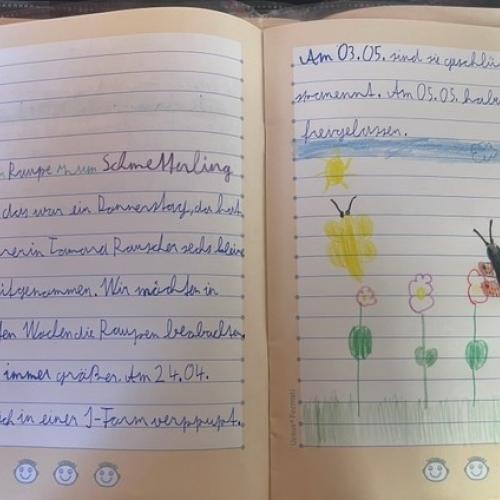 Raupe zum Schmetterling
das war ein Donnerstag, da hat
Rauscher sechs kleine
mitgenommen. Wir möchten in
ten Wochen die Raupen beobachten.
immer größer. Am 24.04.
ich in einer J-Form verpuppt.
Am 03.05. sind sie geschlü
Am 05.05. habe
freigelassen.